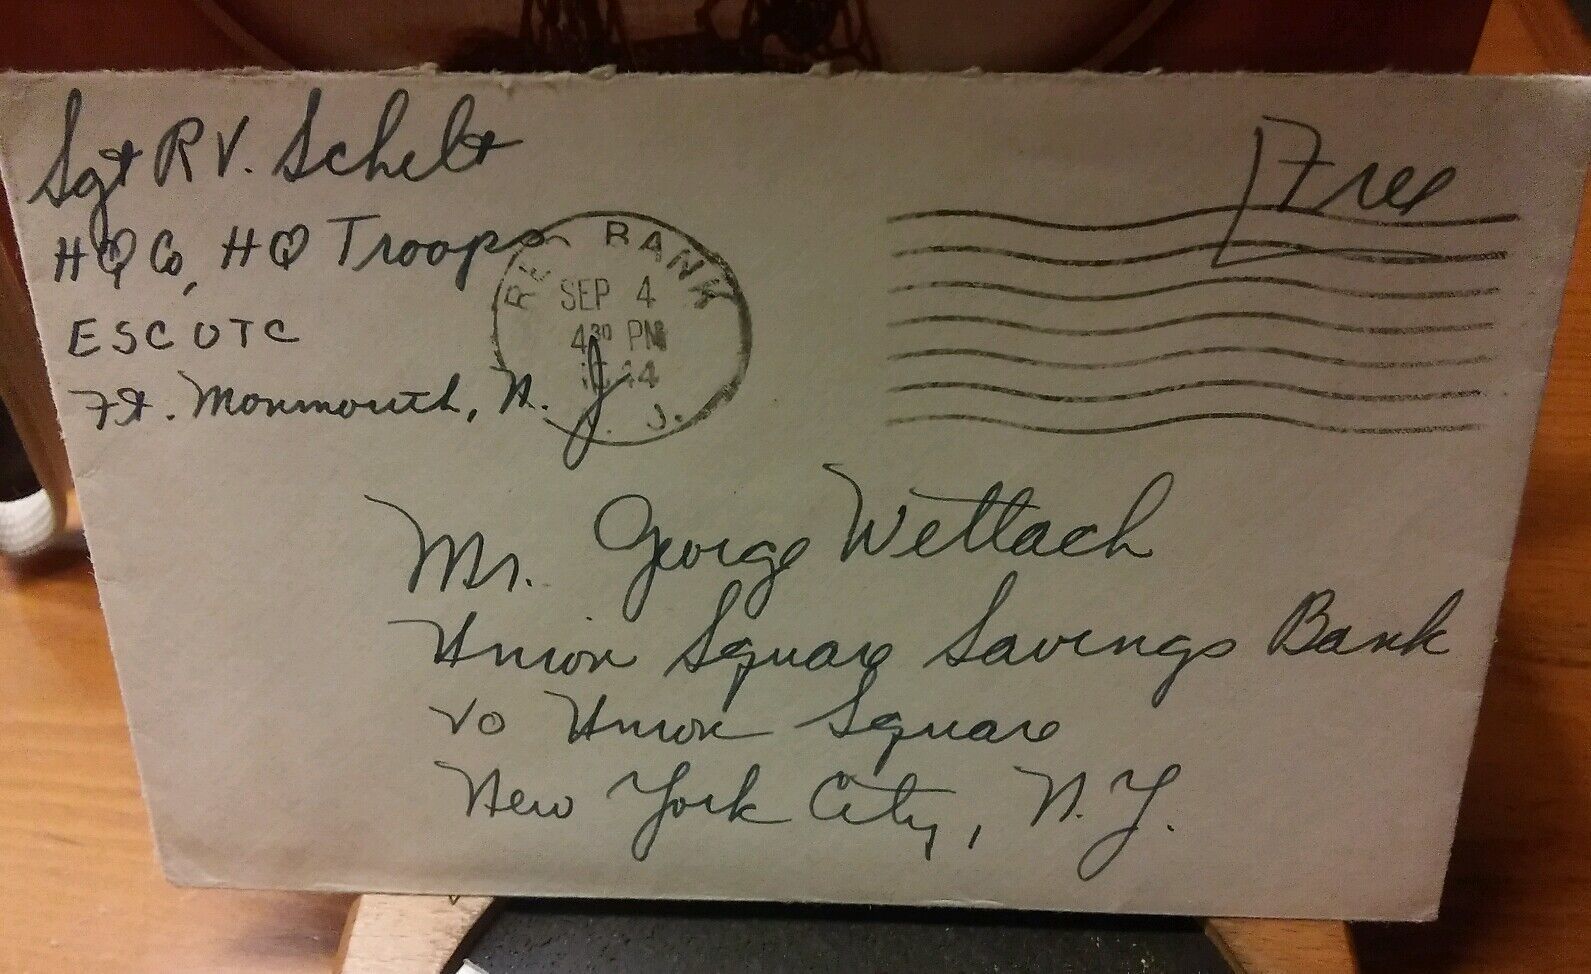 Sgt R V. Schelt
HQ Co, HQ Troops
ESCUTC
Ft. Monmouth, N. J.
RED BANK
SEP 4
4 30 PM
N. J.
Free
Mr. George Wettach
Union Square Savings Bank
20 Union Square
New York City, N. Y.